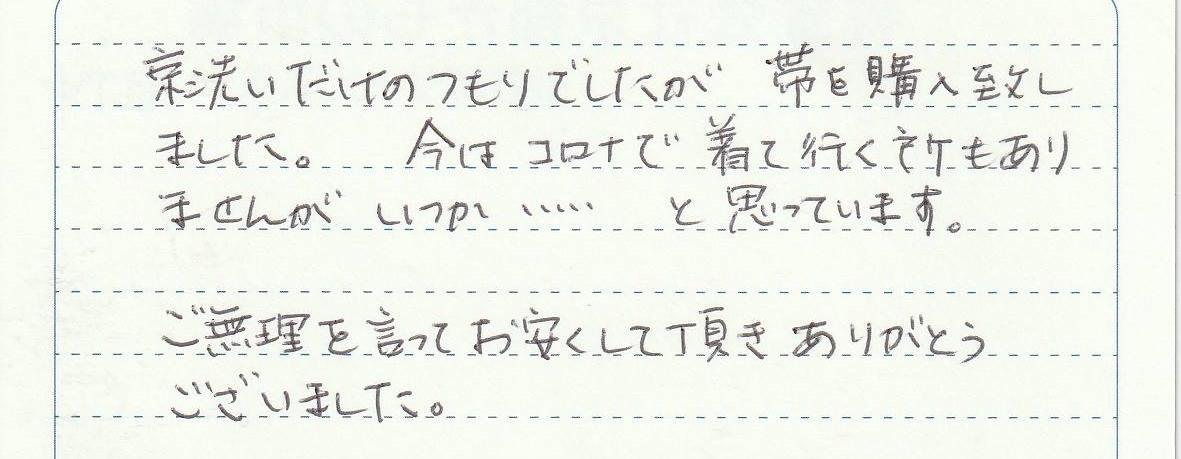 京洗いだけのつもりでしたが 帯を購入致し
ました。 今はコロナで着て行く所もあり
ませんが いつか ・・・・・ と思っています。
ご無理を言ってお安くして頂きありがとう
ございました。